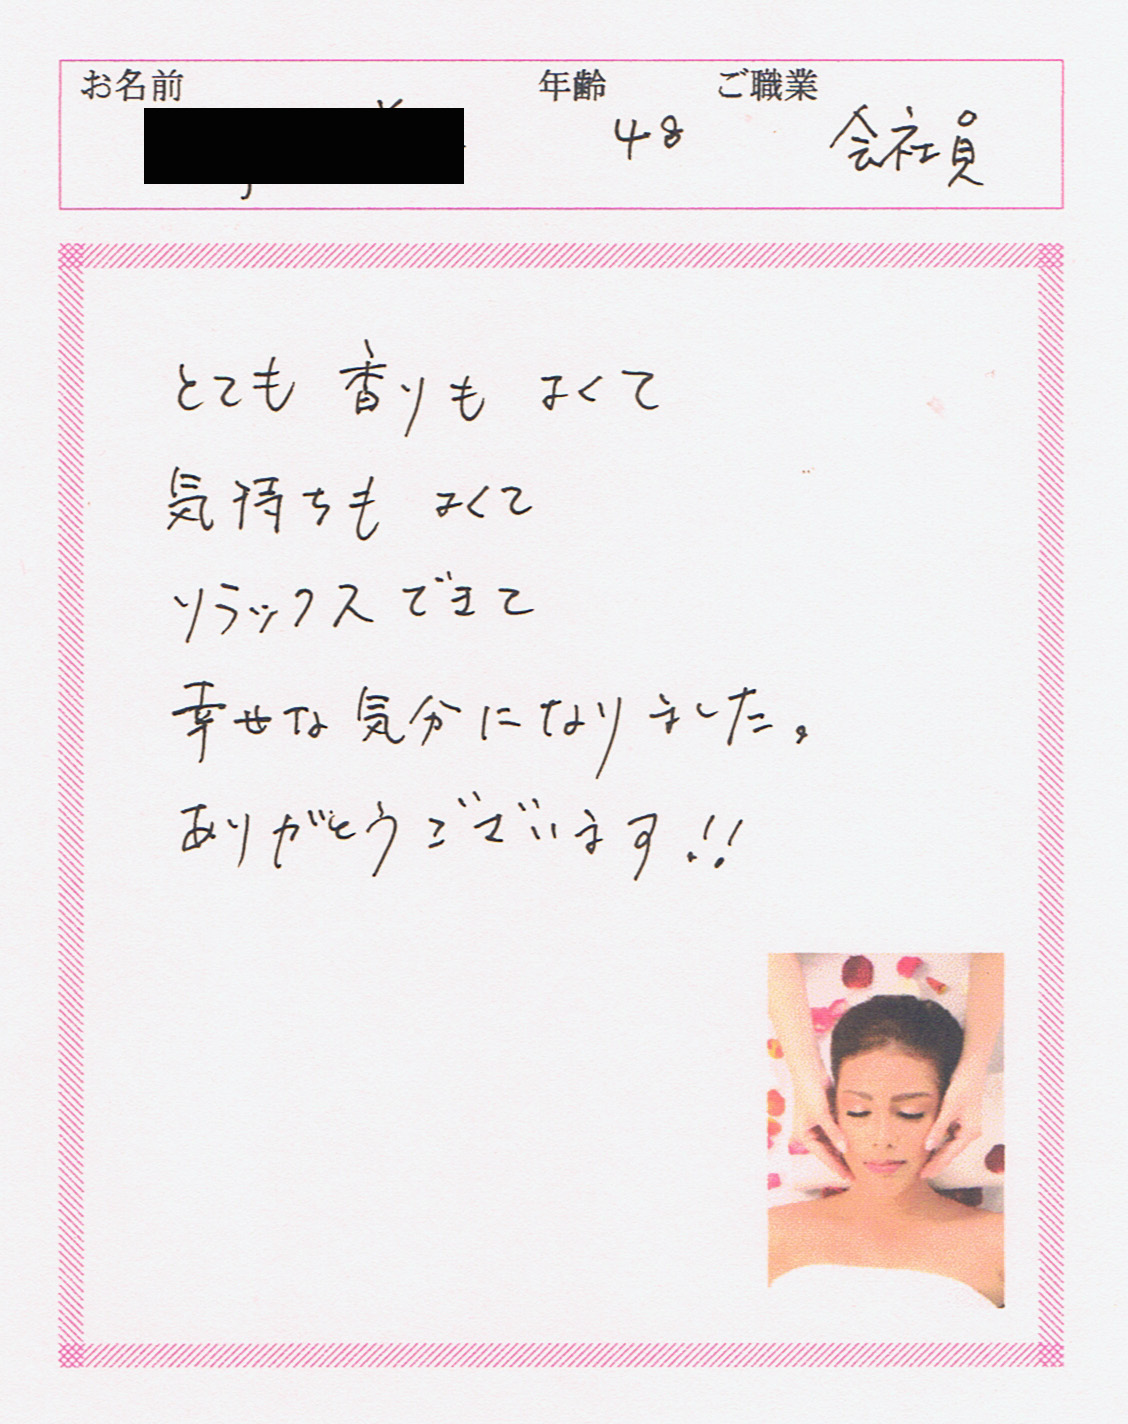 お名前 年齢 ご職業
48 会社員
とても 香りも よくて
気持ちも よくて
リラックスできて
幸せな気分になりました。
ありがとうございます!!